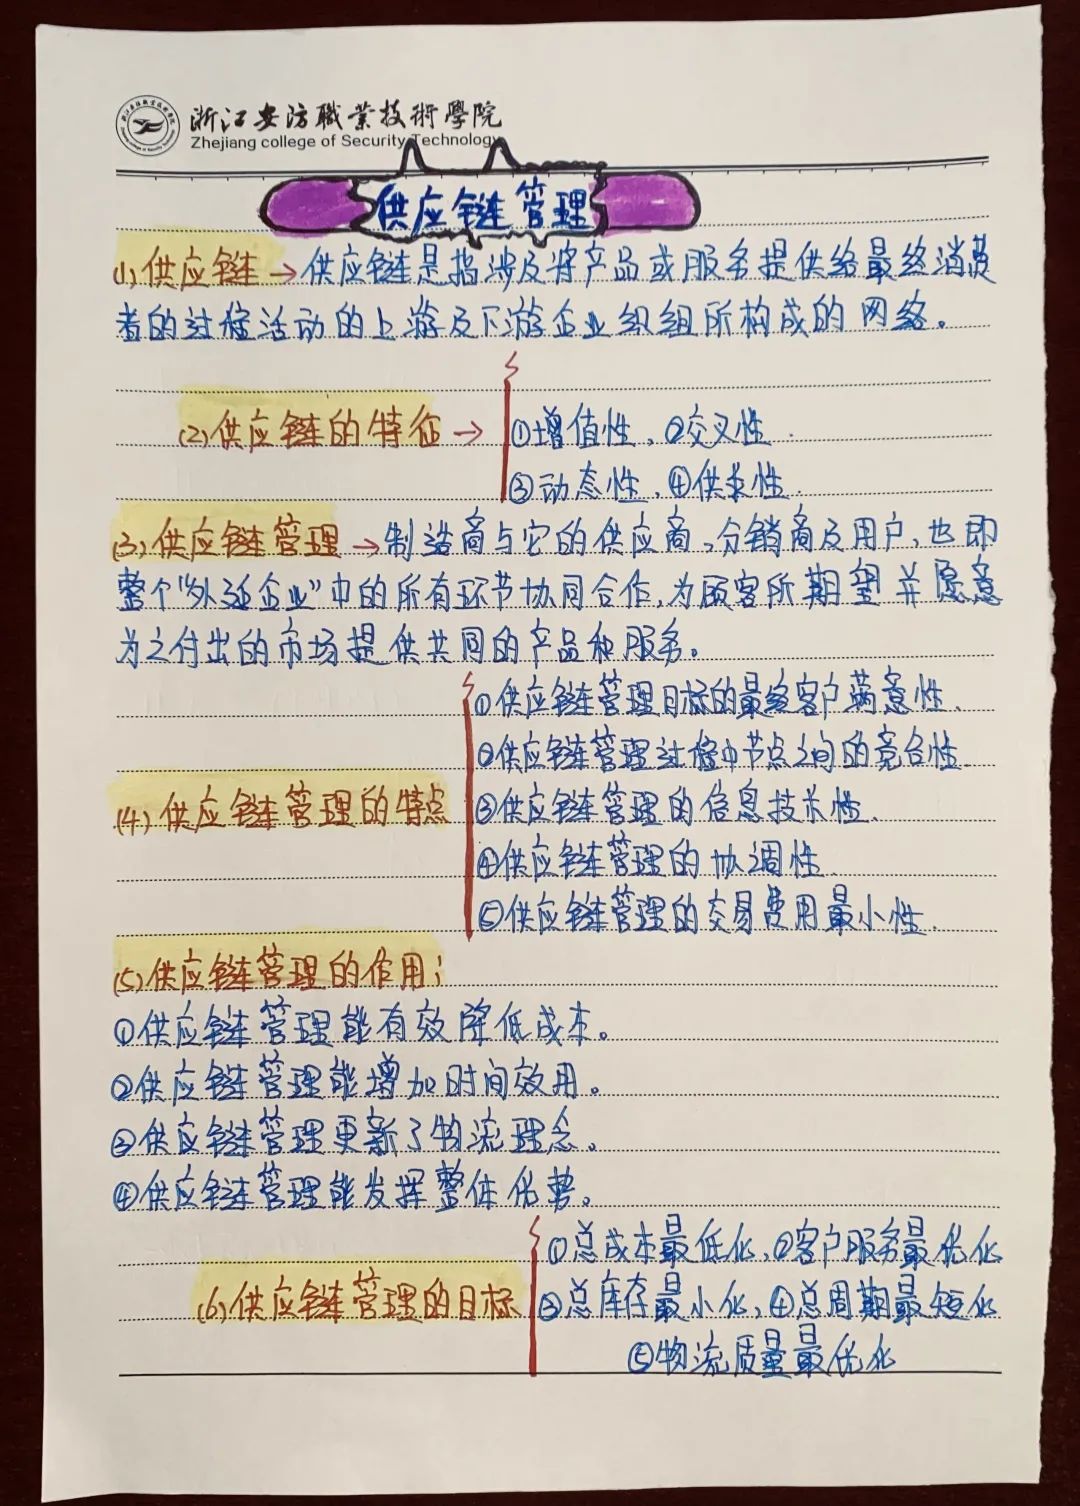 浙江安防職業技術學院
Zhejiang college of Security Technology
供应链管理
(1)供应链→供应链是指涉及将产品或服务提供给最终消费
者的过程活动的上游及下游企业组织所构成的网络。
(2)供应链的特征→
①增值性、②交叉性.
③动态性、④供求性.
(3)供应链管理→制造商与它的供应商,分销商及用户,也即
整个“外延企业”中的所有环节协同合作,为顾客所期望并愿意
为之付出的市场提供共同的产品和服务。
(4)供应链管理的特点
①供应链管理目标的最终客户满意性.
②供应链管理过程中节点之间的竞合性.
③供应链管理的信息技术性.
④供应链管理的协调性.
⑤供应链管理的交易费用最小性.
(5)供应链管理的作用:
①供应链管理能有效降低成本。
②供应链管理能增加时间效用。
③供应链管理更新了物流理念。
④供应链管理能发挥整体优势。
(6)供应链管理的目标
①总成本最低化,②客户服务最优化
③总库存最小化,④总周期最短化
⑤物流质量最优化